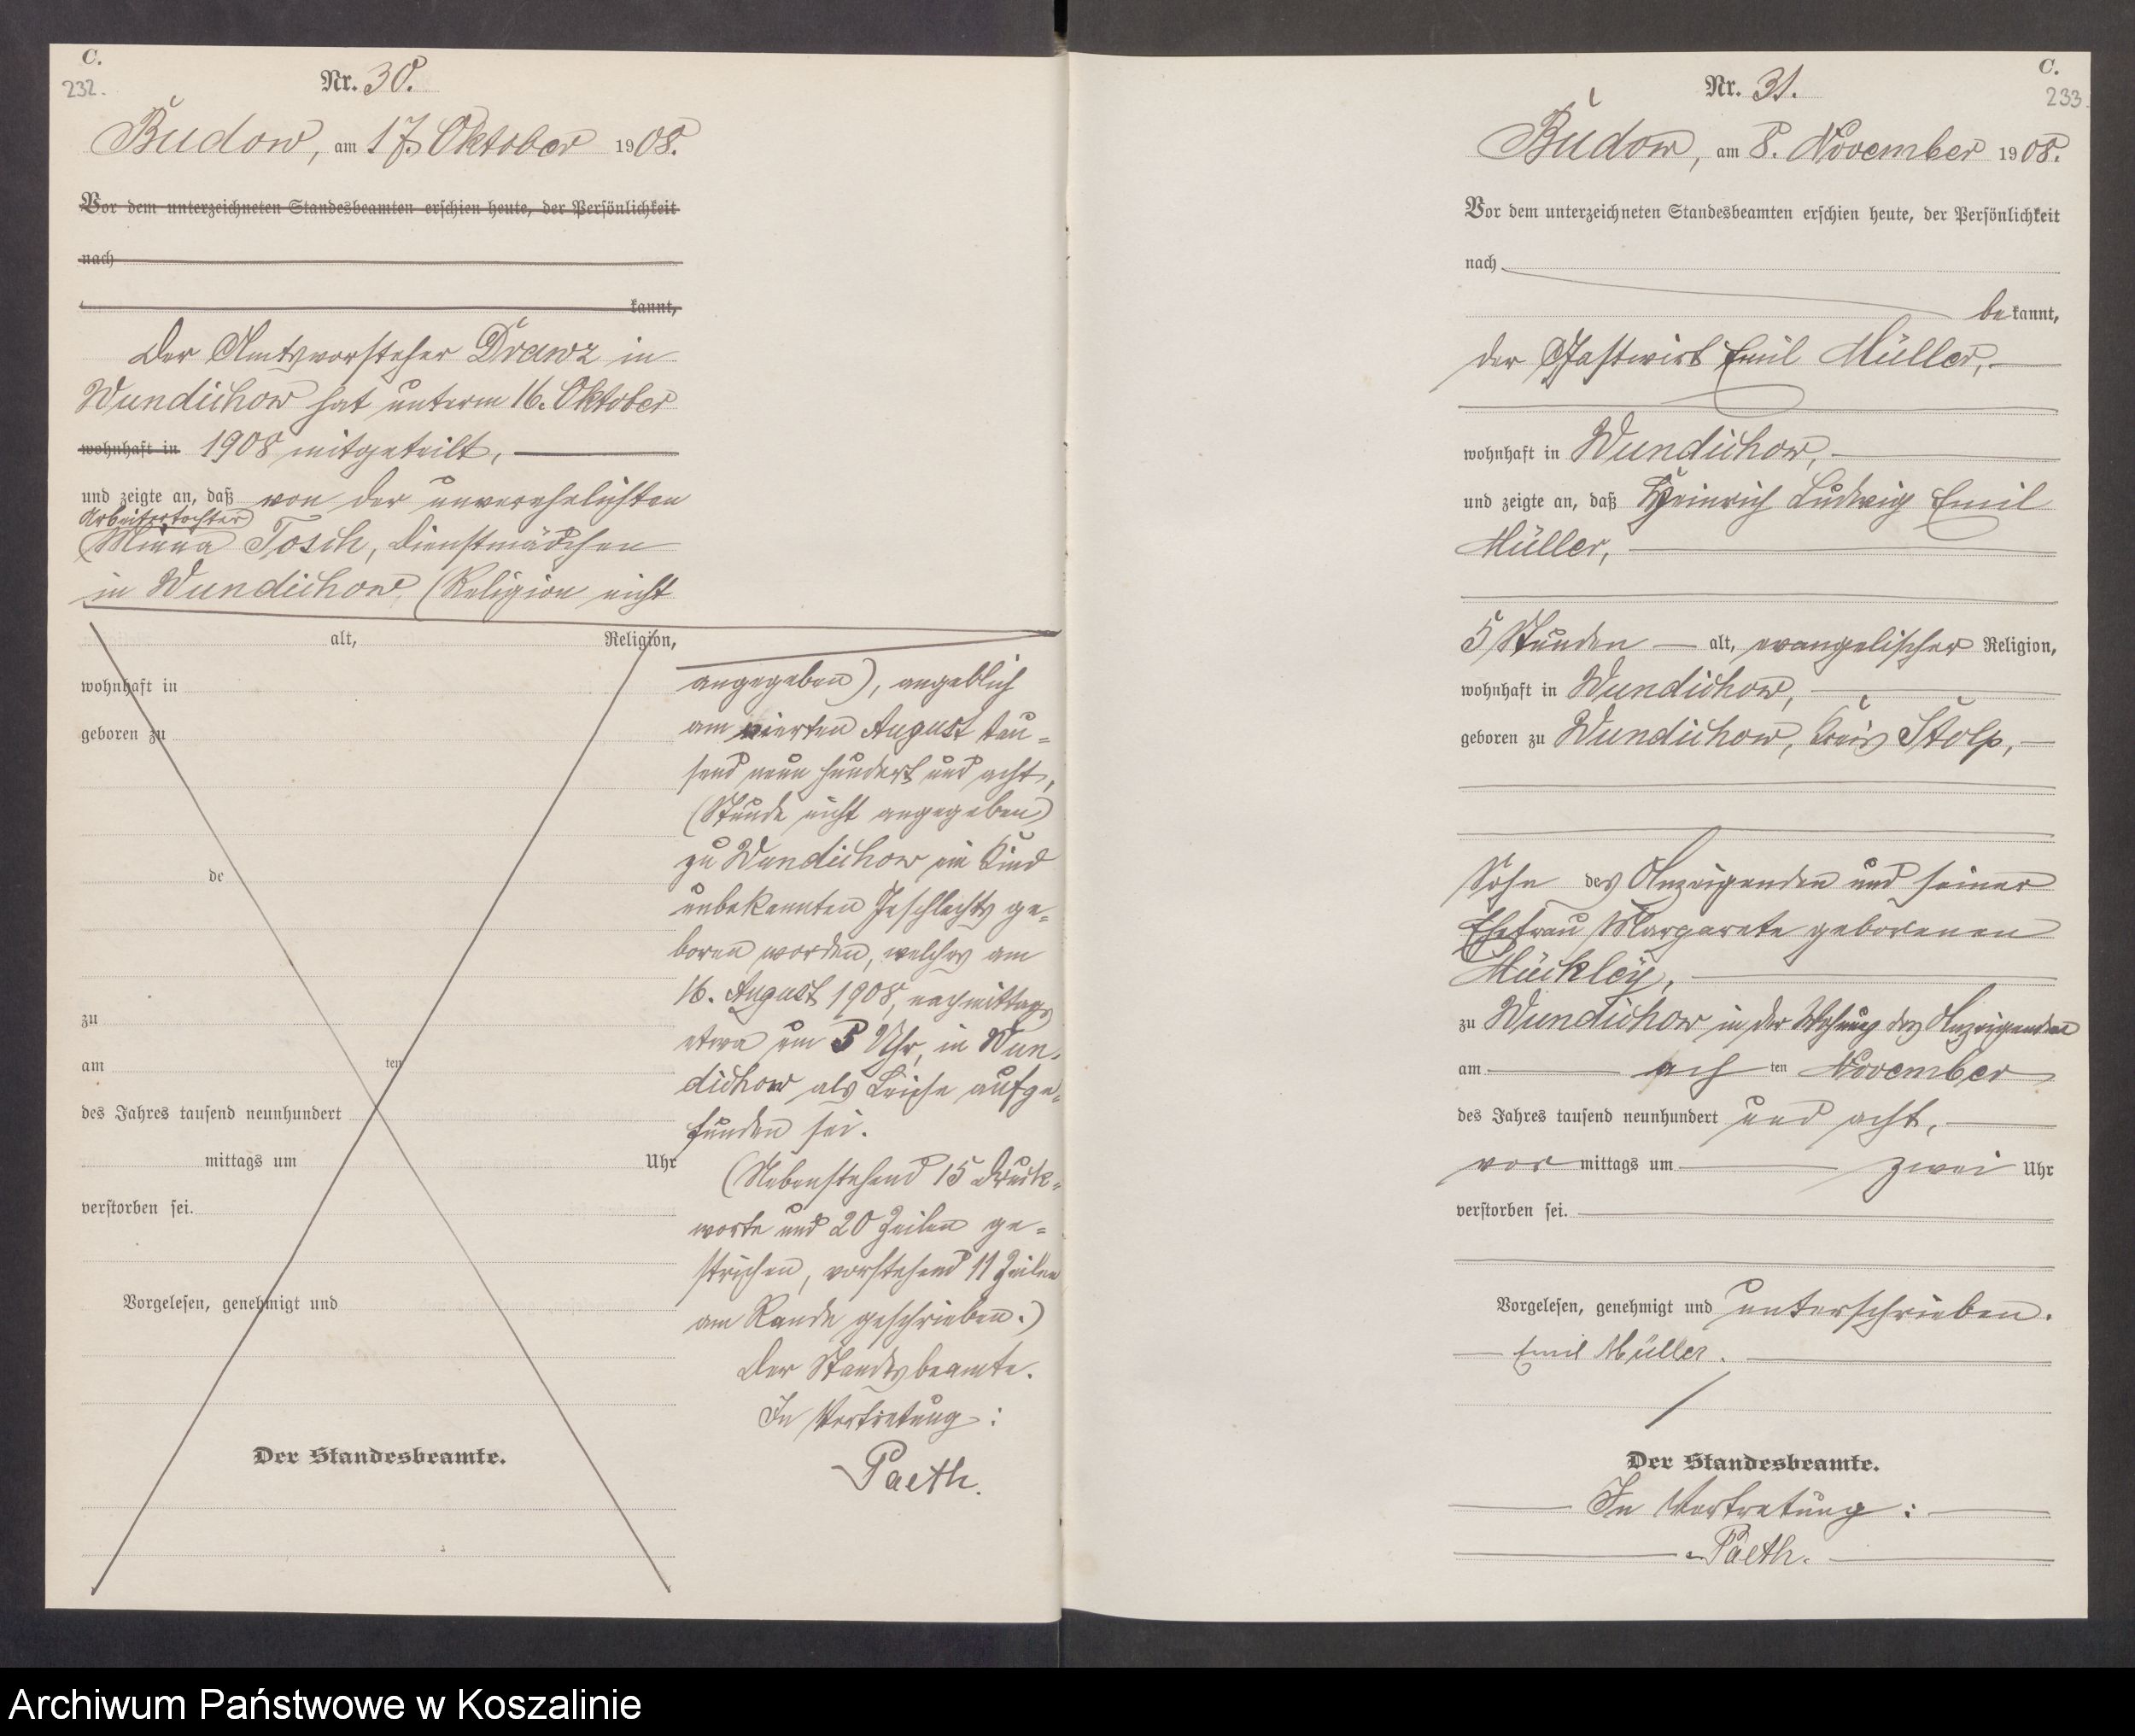 C.
232.
Nr. 30.
Budow, am 17. Oktober 1908.
Vor dem unterzeichneten Standesbeamten erschien heute, der Persönlichkeit
nach
kannt,
Der Amtsvorsteher Drawz in
Wundichow hat unterm 16. Oktober
wohnhaft in 1908 mitgeteilt,
und zeigte an, daß von der unverehelichten
Arbeitertochter
Minna Tosch, Dienstmädchen
in Wundichow (Religion nicht
alt, Religion,
wohnhaft in
geboren zu
de
zu
am ten
des Jahres tausend neunhundert
mittags um Uhr
verstorben sei.
Vorgelesen, genehmigt und
Der Standesbeamte.
angegeben), angeblich
am vierten August tau-
send neun hundert und acht,
(Stunde nicht angegeben)
zu Wundichow ein Kind
unbekannten Geschlechts ge-
boren worden, welches am
16. August 1908, nachmittags
etwa um 5 Uhr, in Wun-
dichow als Leiche aufge-
funden sei.
(Nebenstehend 15 Druck-
worte und 20 Zeilen ge-
strichen, vorstehend 11 Zeilen
am Rande geschrieben.)
Der Standesbeamte.
In Vertretung:
Paeth.
C.
233
Nr. 31.
Budow, am 8. November 1908.
Vor dem unterzeichneten Standesbeamten erschien heute, der Persönlichkeit
nach
bekannt,
der Gastwirt Emil Müller,
wohnhaft in Wundichow,
und zeigte an, daß Heinrich Ludwig Emil
Müller,
5 Stunden alt, evangelischer Religion,
wohnhaft in Wundichow,
geboren zu Wundichow, Kreis Stolp,
Sohn des Anzeigenden und seiner
Ehefrau Margarete geborenen
Mückley,
zu Wundichow in der Wohnung des Anzeigenden
am ach ten November
des Jahres tausend neunhundert und acht,
vor mittags um zwei Uhr
verstorben sei.
Vorgelesen, genehmigt und unterschrieben.
Emil Müller.
Der Standesbeamte.
In Vertretung:
Paeth.
Archiwum Państwowe w Koszalinie